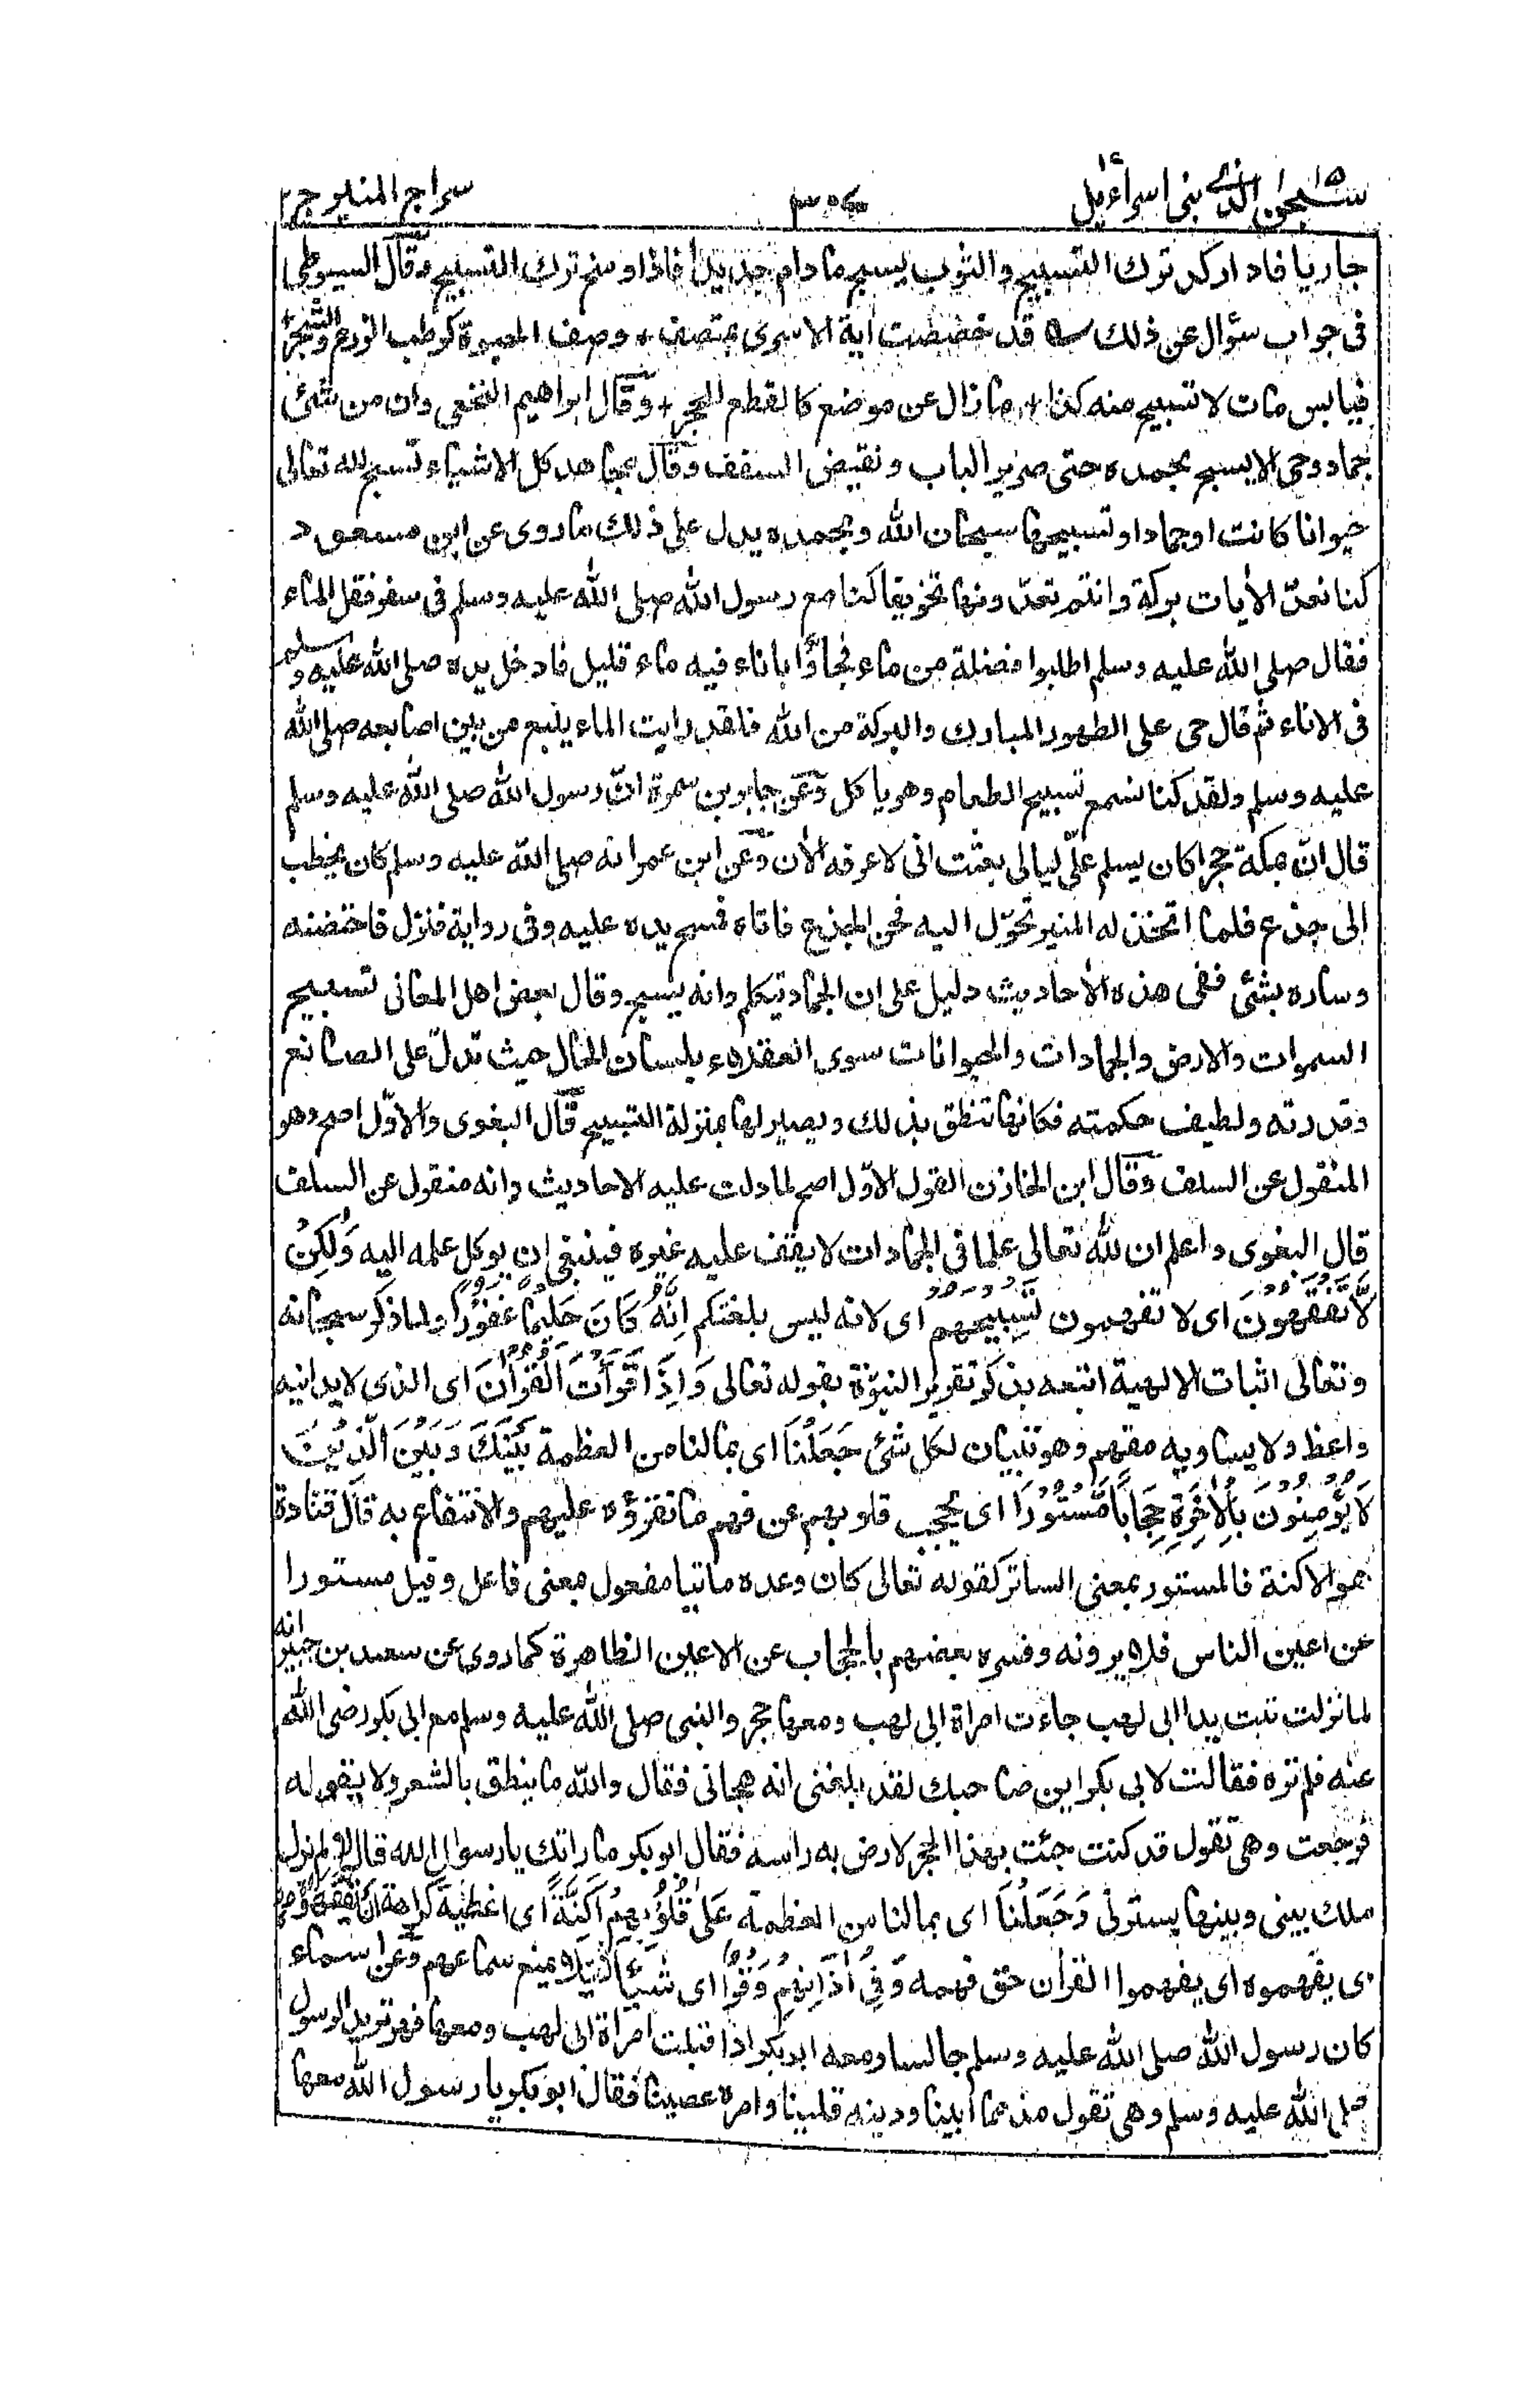 سبحن الذي ١٥ بنی اسرائیل ١٤
٣٠٤
سراج المنیر ج ٢
جاریا فاذا رکد ترك التسبیح والثوب یسبح مادام جدیدا فاذا وسخ ترك التسبیح وقال السیوطی
فی جواب سؤال عن ذلك قد خصصت اٰیة الاسری بمتصف + وصف الحیوة کرطب الزرع والشجر +
فیابس مات لا تسبیح منه کذا + مازال عن موضع کالقطع للحجر + وقال ابراهیم النخعی وان من شئ
جماد وحی الا یسبح بحمده حتی صریر الباب ونقیض السقف وقال مجاهد کل الاشیاء تسبح لله تعالی
حیوانا کانت او جمادا وتسبیحها سبحان الله وبحمده یدل علی ذلك ماروی عن ابن مسعود
کنا نعدّ الاٰیات برکة وانتم تعدّونها تخویفا کنا مع رسول الله صلی الله علیه وسلم فی سفر فقل الماء
فقال صلی الله علیه وسلم اطلبوا فضلة من ماء فجاؤا باناء فیه ماء قلیل فادخل یده صلی الله علیه وسلم
فی الاناء ثم قال حی علی الطهور المبارك والبرکة من الله فلقد رایت الماء ینبع من بین اصابعه صلی الله
علیه وسلم ولقد کنا نسمع تسبیح الطعام وهو یاکل وعن جابر بن سمرة انّ رسول الله صلی الله علیه وسلم
قال انّ بمکة حجرا کان یسلم علیّ لیالی بعثت انی لاعرفه الاٰن وعن ابن عمر انه صلی الله علیه وسلم کان یخطب
الی جذع فلما اتخذ له المنبر تحوّل الیه فحن الجذع فاتاه فمسح یده علیه وفی روایة فنزل فاحتضنه
وساره بشئ ففی هذه الاحادیث دلیل علی ان الجماد یتکلم وانه یسبح وقال بعض اهل المعانی تسبیح
السموات والارض والجمادات والحیوانات سوی العقلاء بلسان الحال حیث تدلّ علی الصانع
وقدرته ولطیف حکمته فکانها تنطق بذلك ویصیر لها بمنزلة التسبیح قال البغوی والاوّل اصح وهو
المنقول عن السلف وقال ابن الخازن القول الاوّل اصح لما دلت علیه الاحادیث وانه منقول عن السلف
قال البغوی واعلم ان لله تعالی علما فی الجمادات لا یقف علیه غیره فینبغی ان یوکل علمه الیه وَلٰکِنْ
لَّا تَفْقَهُوْنَ ای لا تفهمون تَسْبِیْحَهُمْ ای لانه لیس بلغتکم اِنَّهٗ کَانَ حَلِیْمًا غَفُوْرًا ولما ذکر سبحانه
وتعالی اثبات الالهیة اتبعه بذکر تقریر النبوّة بقوله تعالی وَاِذَا قَرَاْتَ الْقُرْاٰنَ ای الذی لا یدانیه
واعظ ولا یساویه مفهم وهو تبیان لکل شئ جَعَلْنَا ای بمالنا من العظمة بَیْنَكَ وَبَیْنَ الَّذِیْنَ
لَا یُؤْمِنُوْنَ بِالْاٰخِرَةِ حِجَابًا مَّسْتُوْرًا ای یحجب قلوبهم عن فهم ماتقرؤه علیهم والانتفاع به قال قتادة
هو الاکنة فالمستور بمعنی الساتر کقوله تعالی کان وعده ماتیا مفعول بمعنی فاعل وقیل مستورا
عن اعین الناس فلا یرونه وفسره بعضهم بالحجاب عن الاعین الظاهرة کماروی عن سعید بن جبیر انه
لما نزلت تبت یدا ابی لهب جاءت امراة ابی لهب ومعها حجر والنبی صلی الله علیه وسلم مع ابی بکر رضی الله
عنه فلم تره فقالت لابی بکر این صاحبك لقد بلغنی انه هجانی فقال والله ما ینطق بالشعر ولا یقوله
فرجعت وهی تقول قد کنت جئت بهذا الحجر لارض به راسه فقال ابو بکر ما راتك یا رسول الله قال لا لم یزل
ملك بینی وبینها یسترنی وَجَعَلْنَا ای بمالنا من العظمة عَلٰی قُلُوْبِهِمْ اَکِنَّةً ای اغطیة کراهة اَنْ یَّفْقَهُوْهُ
ای یفهموه ای یفهموا القراٰن حق فهمه وَفِیْ اٰذَانِهِمْ وَقْرًا ای شیئا ثقیلا یمنع سماعهم وعن اسماء
کان رسول الله صلی الله علیه وسلم جالسا ومعه ابو بکر اذ اقبلت امراة ابی لهب ومعها فهر ترید الرسول
صلی الله علیه وسلم وهی تقول مذمما ابینا ودینه قلینا وامره عصینا فقال ابو بکر یا رسول الله معها